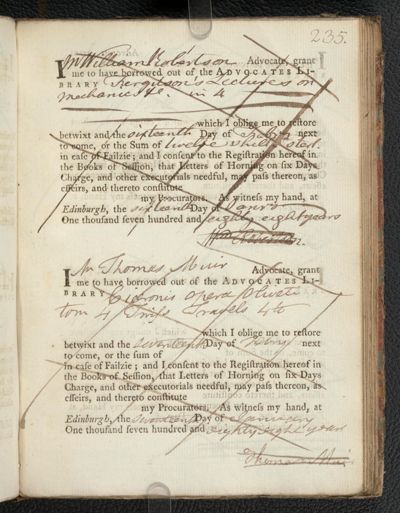 235.
I Mr William Robertson Advocate, grant
me to have borrowed out of the ADVOCATES LI-
BRARY Ferguson's Lectures on
mechanics &c. in 4
which I oblige me to reſtore
betwixt and the sixteenth Day of next
to come, or the Sum of twelve shill: sterl.
in caſe of Failzie; and I conſent to the Regiſtration hereof in
the Books of Seſſion, that Letters of Horning on ſix Days
Charge, and other executorials needful, may paſs thereon, as
effeirs, and thereto conſtitute
my Procurators. As witneſs my hand, at
Edinburgh, the sixteenth Day of
One thouſand ſeven hundred and eighty eight years
I Mr Thomas Muir Advocate, grant
me to have borrowed out of the ADVOCATES LI-
BRARY Ciceronis opera Oliveti
tom 4 Travels 4to
which I oblige me to reſtore
betwixt and the seventeenth Day of next
to come, or the ſum of
in caſe of Failzie; and I conſent to the Regiſtration hereof in
the Books of Seſſion, that Letters of Horning on ſix Days
Charge, and other executorials needful, may paſs thereon, as
effeirs, and thereto conſtitute
my Procurators. As witneſs my hand, at
Edinburgh, the seventeenth Day of January
One thouſand ſeven hundred and eighty eight years
Thomas Muir